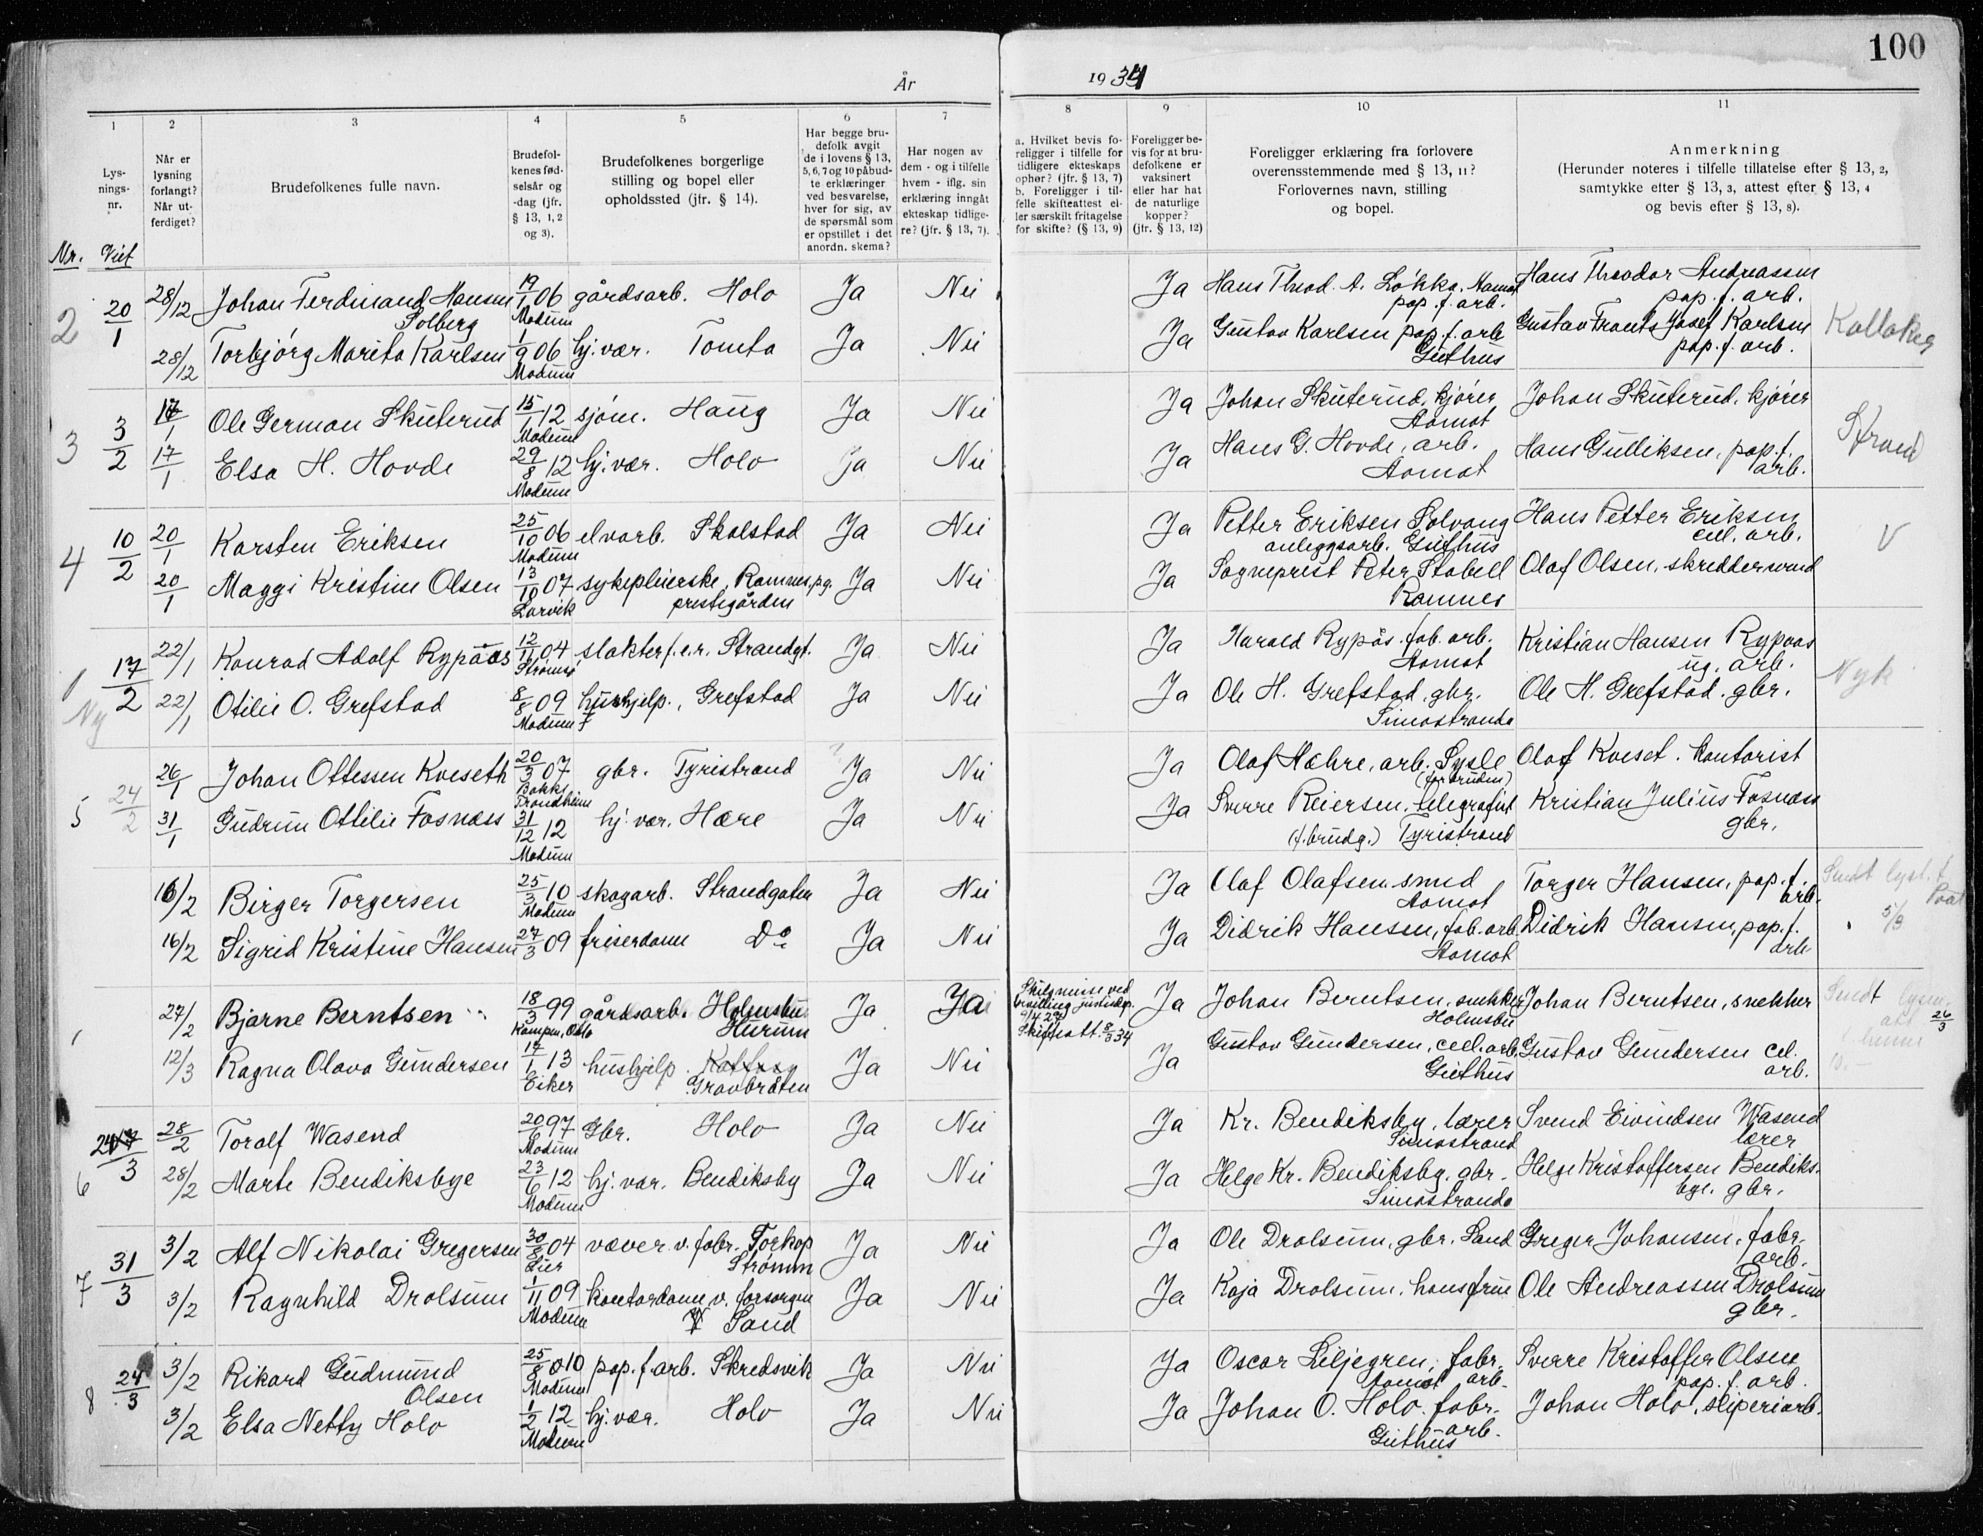 100
År 1934
1 2 3 4 5 6 7 8 9 10 11
Lysnings-nr.
Når er lysning forlangt? Når utferdiget?
Brudefolkenes fulle navn.
Brudefolkenes fødselsår og -dag (jfr. § 13, 1, 2 og 3).
Brudefolkenes borgerlige stilling og bopel eller opholdssted (jfr. § 14).
Har begge brudefolk avgit de i lovens § 13, 5, 6, 7 og 10 påbudte erklæringer ved besvarelse, hver for sig, av de spørsmål som er opstillet i det anordn. skema?
Har nogen av dem - og i tilfelle hvem - iflg. sin erklæring inngåt ekteskap tidligere? (jfr. § 13, 7).
a. Hvilket bevis foreligger i tilfelle for tidligere ekteskaps ophør? (jfr. § 13, 7) b. Foreligger i tilfelle skifteattest eller særskilt fritagelse for skifte? (§ 13, 9)
Foreligger bevis for at brudefolkene er vaksinert eller har hat de naturlige kopper? (jfr. § 13, 12)
Foreligger erklæring fra forlovere overensstemmende med § 13, 11? Forlovernes navn, stilling og bopel.
Anmerkning (Herunder noteres i tilfelle tillatelse efter § 13, 2, samtykke efter § 13, 3, attest efter § 13, 4 og bevis efter § 13, 8).
Nr. Viet
2 20/1 28/12 Johan Ferdinand Hansen Solberg 19/1 06 Modum gårdsarb. Holo Ja Nei Ja Hans Theod. A. Løkka, Aamot pap. f. arb. Hans Theodor Andreassen pap. f. arb.
28/12 Torbjørg Marita Karlsen 1/9 06 Modum hj. vær. Tomta Ja Nei Ja Gustav Karlsen pap. f. arb Geithus Gustav Frants Josef Karlsen pap. f. arb.
3 3/2 17/1 Ole German Skuterud 15/1 12 Modum sjøm. Haug Ja Nei Ja Johan Skuterud, kjører Aamot Johan Skuterud, kjører
17/1 Elsa H. Hovde 29/8 12 Modum hj. vær. Holo Ja Nei Ja Hans G. Hovde, arb. Aamot Hans Gulliksen, pap. f. arb.
4 10/2 20/1 Karsten Eriksen 25/10 06 Modum elvarb. Skalstad Ja Nei Ja Petter Eriksen Solvang anleggsarb. Geithus Hans Petter Eriksen cell. arb. V
20/1 Maggi Kristine Olsen 13/10 07 Larvik sykepleierske, Ramnes pg. prestegården Ja Nei Ja Sogneprest Peter Stabell Ramnes Olaf Olsen, skreddersvend
1 Ny 17/2 22/1 Konrad Adolf Rypaas 12/11 04 Strømsø slakter f.e.r. Strandgt. Ja Nei Ja Harald Rypås fab. arb. Aamot Kristian Hansen Rypaas ug. arb. Nyk
22/1 Otilie O. Grefstad 8/8 09 Modum hushjelp., Grefstad Ja Nei Ja Ole H. Grefstad, gbr. Simostranda Ole H. Grefstad, gbr.
5 24/2 26/1 Johan Ottessen Kveseth 20/3 07 Bakke Trondheim gbr. Tyristrand Ja Nei Ja Olaf Hæhre, arb. Sysle (for bruden) Olaf Kveset. Kontorist
31/1 Gudrun Ottilie Fosnæss 31/12 12 Modum hj. vær. Hære Ja Nei Ja Sverre Reiersen, telegrafist (f. brudg.) Tyristrand Kristian Julius Fosnæss gbr.
16/2 Birger Torgersen 25/3 10 Modum skogarb. Strandgaten Ja Nei Ja Olaf Olafsen smed Aamot Torger Hansen, pap. f. arb. Sendt lyst. 5/3
16/2 Sigrid Kristine Hansen 27/3 09 friserdame Do Ja Nei Ja Didrik Hansen, fab. arb. Aamot Didrik Hansen, pap. f. arb
27/2 Bjarne Berntsen 18/3 99 Kampen, Oslo gårdsarb. Holmsbu Hurum Ja Ja Skifteatt. 8/3 34 Ja Johan Berntsen, snekker Holmsbu Johan Berntsen, snekker Sendt lysn. att 26/3
12/3 Ragna Olava Gundersen 17/1 13 Eiker hushjelp. Gravbråten Ja Nei Ja Gustav Gundersen, cell. arb. Geithus Gustav Gundersen cel. arb.
6 24/3 28/2 Toralf Wasend 20/6 97 Modum Gbr. Holo Ja Nei Ja Kr. Bendiksby, lærer Simostrand Svend Eivindsen Wasend lærer
28/2 Marte Bendiksbye 23/6 12 Modum hj. vær. Bendiksby Ja Nei Ja Helge Kr. Bendiksby, gbr. Simostranda Helge Kristoffersen Bendiksbye. gbr.
7 31/3 3/2 Alf Nikolai Gregersen 30/8 04 Lier væver v. fabr. Torkop Strømm Ja Nei Ja Ole Drolsum, gbr. Sand Greger Johansen, fabr. arb.
3/2 Ragnhild Drolsum 1/11 09 Modum kontordame v. forsorgen Sand Ja Nei Ja Kaja Drolsum, hansfrue Ole Andreassen Drolsum gbr.
8 24/3 3/2 Rikard Gudmund Olsen 25/8 010 Modum pap. f arb. Skredsvik Ja Nei Ja Oscar Liljegren, fabr. arb. Aamot Sverre Kristoffer Olsen pap. f. arb.
3/2 Elsa Netty Holo 1/2 12 Modum hj. vær. Holo Ja Nei Ja Johan O. Holo. fabr. arb. Geithus Johan Holo, sliperiarb.